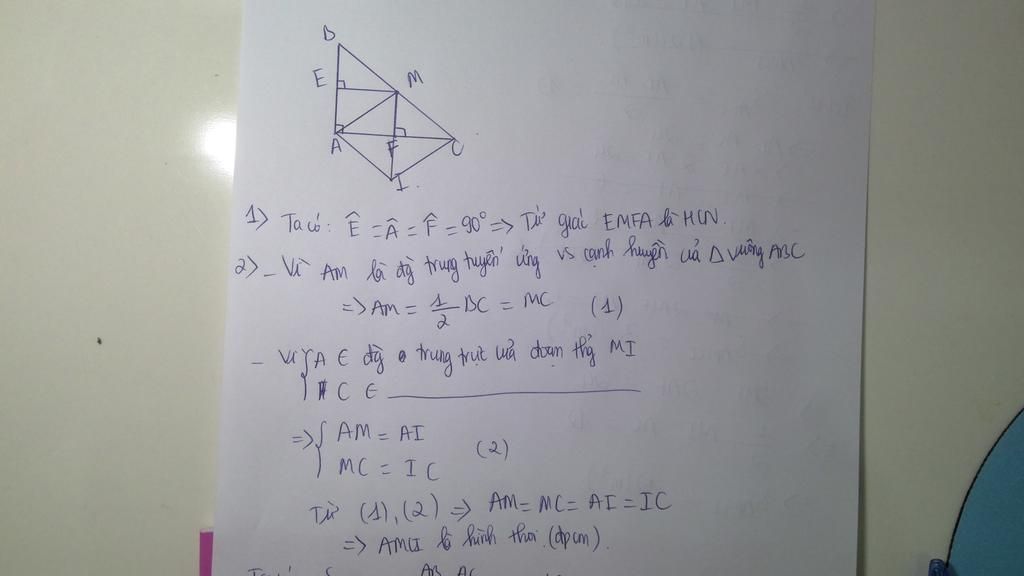 B
E M
A F C
I
1) Ta có: Ê = Â = F̂ = 90° => Tứ giác EMFA là HCN.
2) - Vì AM là đg trung tuyến ứng vs cạnh huyền của Δ vuông ABC
=> AM = 1/2 BC = MC (1)
- Vì { A ∈ đg trung trực của đoạn thg MI
C ∈ ________
=> { AM = AI
MC = IC (2)
Từ (1), (2) => AM = MC = AI = IC
=> AMCI là hình thoi. (đpcm).
AB.AC